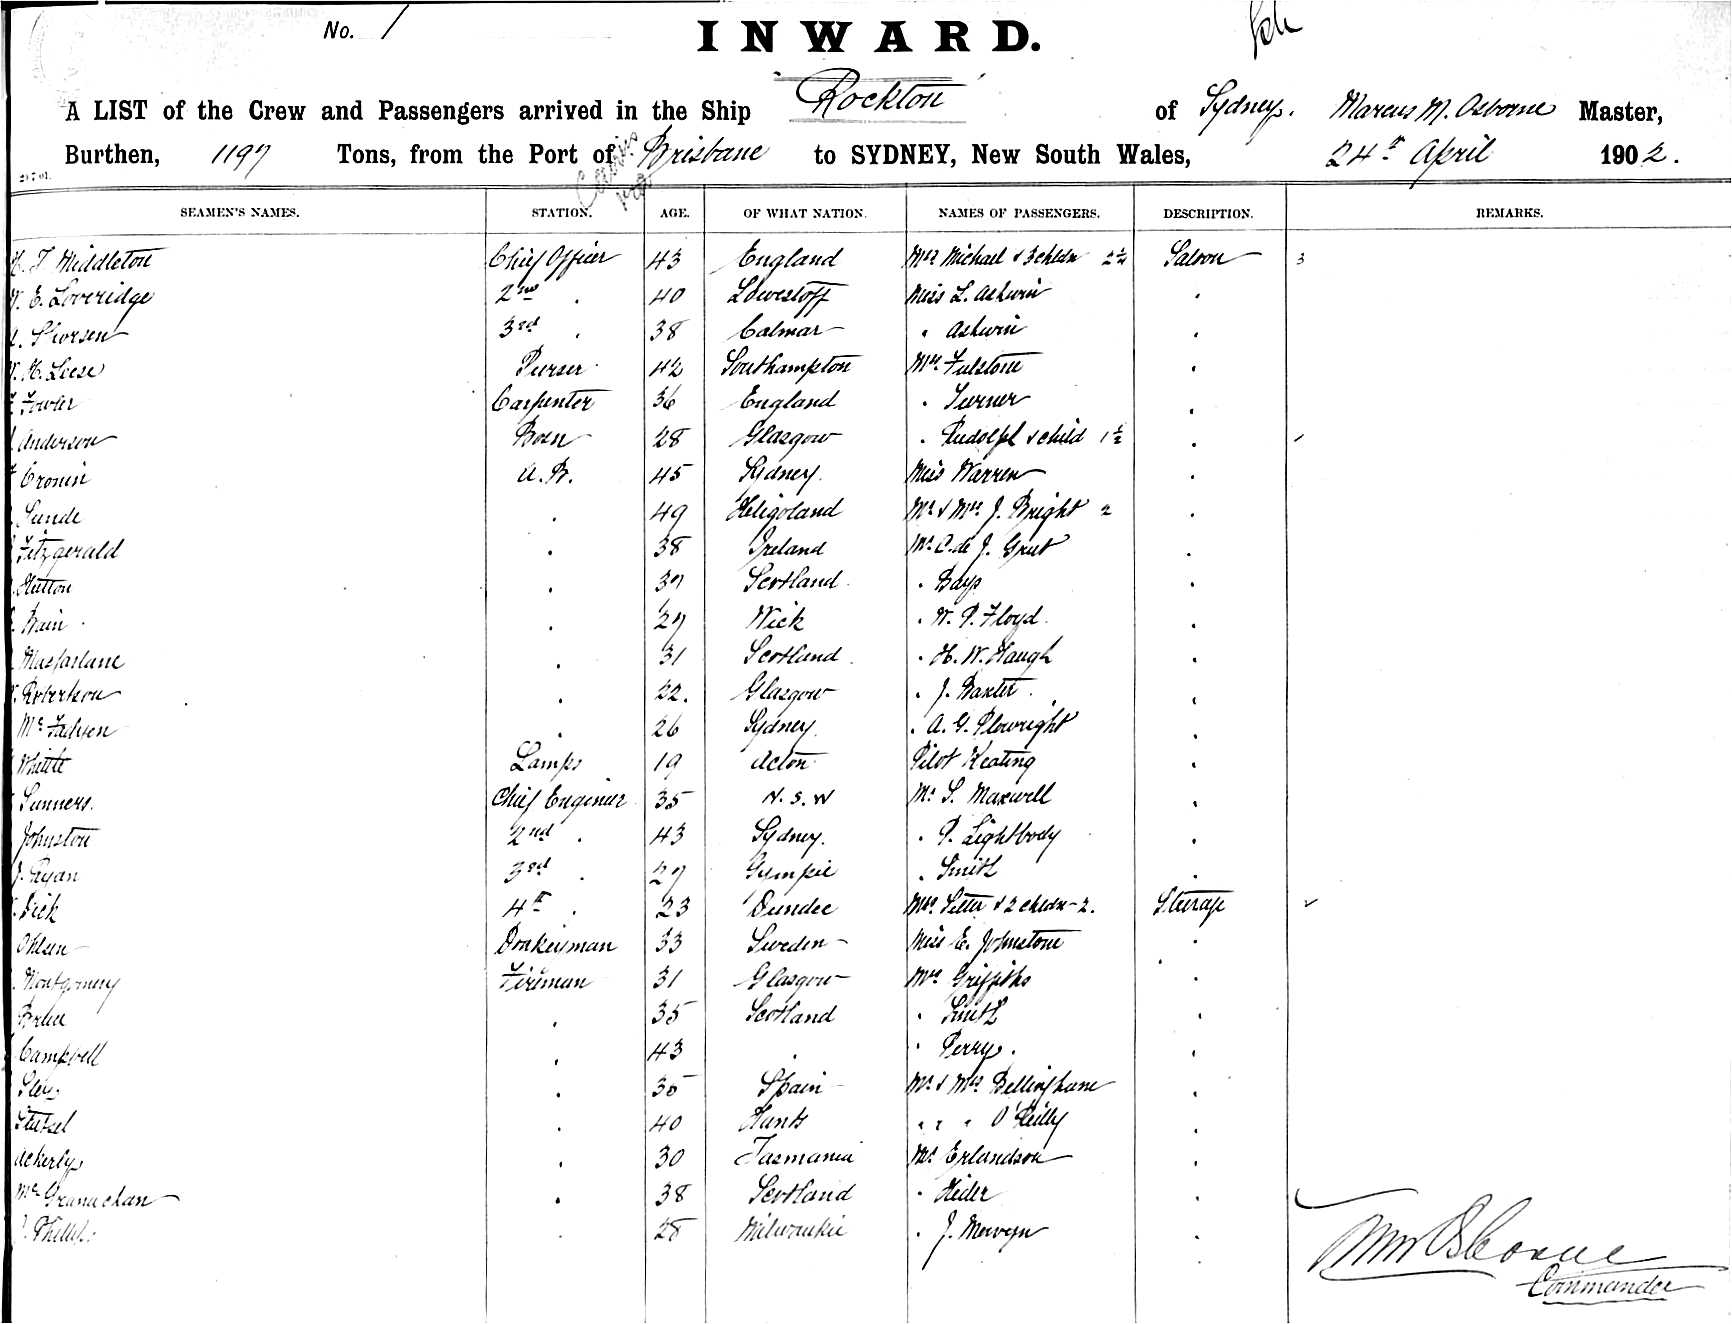 No. 1
INWARD.
A LIST of the Crew and Passengers arrived in the Ship Rockton of Sydney. Marcus M. Osborne Master,
Burthen, 1197 Tons, from the Port of Cairns via Brisbane to SYDNEY, New South Wales, 24th April 1902.
SEAMEN'S NAMES. STATION. AGE. OF WHAT NATION. NAMES OF PASSENGERS. DESCRIPTION. REMARKS.
Middleton Chief Officer 43 England Mrs Michael & 3 chldn 2½ Saloon 3
W. E. Loveridge 2nd . 40 Lowestoff Miss L. Ashwin .
3rd . 38 Calmar . Ashwin .
W. H. Leese Purser 42 Southampton Mrs Fulstone .
Fowler Carpenter 36 England . Turner .
Anderson Bosn 28 Glasgow . Rudolph & child 1½ .
Cronin A.B. 45 Sydney. Miss Warren .
Sunde . 49 Heligoland Mr & Mrs J. Bright 2 .
Fitzgerald . 38 Ireland Mr C. de J. Grut .
Hutton . 37 Scotland . Bays .
Bain . 27 Wick . W. P. Floyd .
Macfarlane . 31 Scotland . H. W. Haugh .
Robertson . 22. Glasgow . J. Baxter .
. 26 Sydney. . A. G. Plowright .
Whittle Lamps 19 Acton Pilot Keating .
Sunners. Chief Enginer 35 N.S.W Mr S. Maxwell .
Johnston 2nd . 43 Sydney. . P. Lightbody .
J. Ryan 3rd . 27 Gympie . Smith .
Dick 4th . 23 Dundee Mrs & 2 chldn - 2. Steerage
Ohlsen Donkeyman 33 Sweden Miss E. Johnstone .
Montgomery Fireman 31 Glasgow Mrs Griffiths .
. 35 Scotland . Smith .
Campbell . 43 . . Perry. .
. 30 Spain Mr & Mrs Bellingham .
. 40 Hants . . . O'Reilly .
Ackerly . 30 Tasmania Mr Erlandson .
McGranachan . 38 Scotland . Heder .
Phillips. . 28 Milwaukie . J. Mervyn .
MM Osborne
Commander